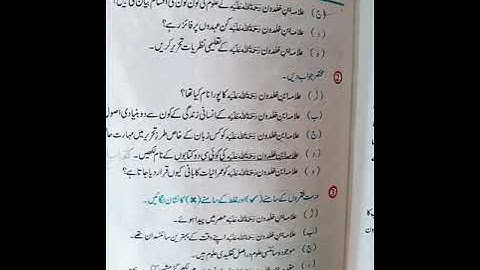 (ج) علامہ ابنِ خلدون رحمۃ اللہ علیہ نے علوم کی کون کون کی اقسام بیان کی ہیں؟
(د) علامہ ابنِ خلدون رحمۃ اللہ علیہ کن عہدوں پر فائز رہے؟
(ہ) علامہ ابنِ خلدون رحمۃ اللہ علیہ کے تعلیمی نظریات تحریر کریں۔
2 مختصر جواب دیں۔
(ا) علامہ ابنِ خلدون رحمۃ اللہ علیہ کا پورا نام کیا تھا؟
(ب) علامہ ابنِ خلدون رحمۃ اللہ علیہ کے انسانی زندگی کے کون سے دو بنیادی اصول
(ج) علامہ ابنِ خلدون رحمۃ اللہ علیہ کو کس زبان کے خاص طرزِ تحریر میں مہارت حا
(د) علامہ ابنِ خلدون رحمۃ اللہ علیہ کی کوئی سی دو کتابوں کے نام لکھیں۔
(ہ) علامہ ابنِ خلدون رحمۃ اللہ علیہ کو عمرانیات کا بانی کیوں قرار دیا جاتا ہے؟
3 درست فقروں کے سامنے (✓) اور غلط کے سامنے (✗) کا نشان لگائیں۔
(ا) علامہ ابنِ خلدون رحمۃ اللہ علیہ مصر میں پیدا ہوئے۔
(ب) علامہ ابنِ خلدون رحمۃ اللہ علیہ اپنے وقت کے بہترین سائنسدان تھے۔
(ج) موجودہ سائنسی علوم دراصل تقلیدی علوم ہیں۔